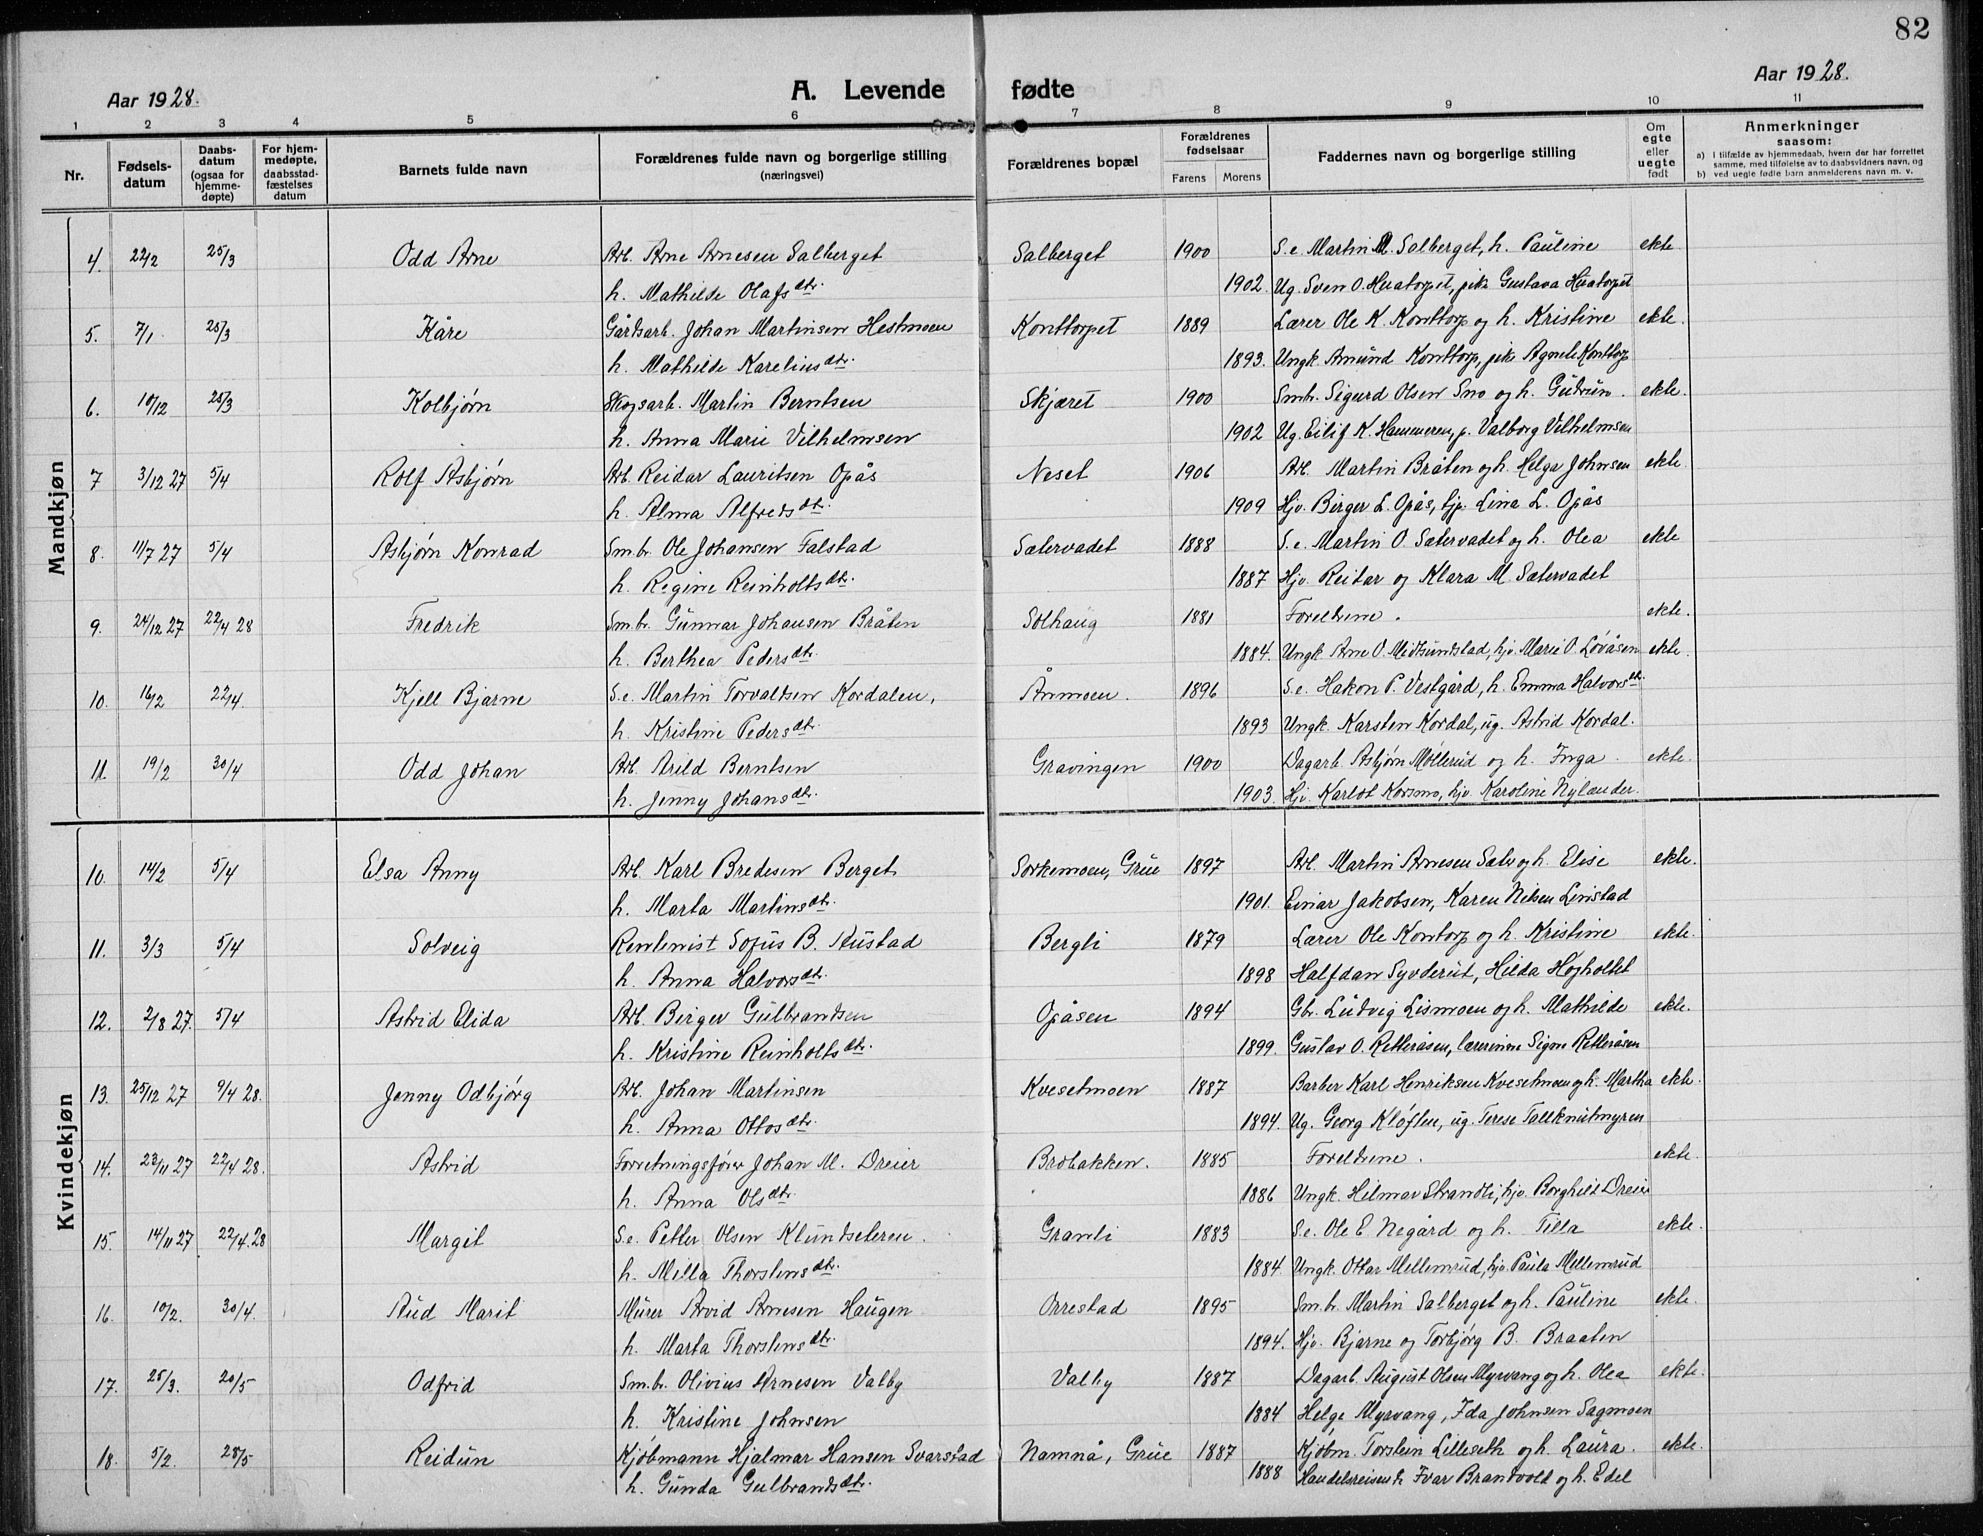 82
Aar 1928.
A. Levende fødte
Aar 1928.
1 2 3 4 5 6 7 8 9 10 11
Nr.
Fødsels-
datum
Daabs-
datum
(ogsaa for
hjemme-
døpte)
For hjem-
medøpte,
daabsstad-
fæstelses
datum
Barnets fulde navn
Forældrenes fulde navn og borgerlige stilling
(næringsvei)
Forældrenes bopæl
Forældrenes
fødselsaar
Farens Morens
Faddernes navn og borgerlige stilling
Om
egte
eller
uegte
født
Anmerkninger
saasom:
a) I tilfælde av hjemmedaab, hvem der har forrettet
samme, med tilføielse av to daabsvidners navn, og
b) ved uegte fødte barn anmelderens navn m. v.
Mandkjøn
4. 22/2 25/3 Odd Arne Arb. Arne Arnesen Salberget Salberget 1900 S.e. Martin M. Salberget, h. Pauline ekte
h. Mathilde Olafsdtr. 1902. Ug. Sven O. Huatorpet, pike Gustava Huatorpet
5. 7/1 25/3 Kåre Gårdsarb. Johan Martinsen Hestmoen Konttorpet 1889 Lærer Ole K. Konttorp og h. Kristine ekte.
h. Mathilde Kareliusdtr. 1893. Ungk. Amund Konttorp, pike Agnete Konttorp
6. 10/12 25/3 Kolbjørn Skogsarb. Martin Berntsen Skjæret 1900 Smbr. Sigurd Olsen Smo og h. Gudrun. ekte.
h. Anna Marie Vilhelmsen 1902 Ug. Eilif K. Hammeren, p. Valborg Vilhelmsen
7 3/12 27 5/4 Rolf Asbjørn Arb. Reidar Lauritsen Opås Neset 1906 Arb. Martin Bråten og h. Helga Johnsen ekte.
h. Alma Alfredsdtr. 1909 Hjv. Birger L. Opås, hjv. Lina L. Opås
8. 11/7 27 5/4 Asbjørn Konrad Smbr. Ole Johansen Falstad Sætervadet 1888 S.e. Martin O. Sætervadet og h. Olea ekte
h. Regine Reinholtsdtr. 1887 Hjv. Reidar og Klara M. Sætervadet
9. 24/12 27 22/4 28 Fredrik Smbr. Gunnar Johansen Bråten Solhaug 1881 Foreldrene. ekte.
h. Berthea Pedersdtr. 1884. Ungk. Arne O. Midtsundstad, hjv. Marie O. Løvåsen ekte.
10. 16/2 22/4. Kjell Bjarne S.e. Martin Torvaldsen Kordalen, Ånmoen. 1896 S.e. Hakon P. Vestgård, h. Emma Halvorsdtr.
h. Kristine Pedersdtr. 1893 Ungk. Karsten Kordal, ug. Astrid Kordal.
11. 19/2 30/4 Odd Johan Arb. Arild Berntsen Gravingen 1900 Dagarb. Asbjørn Møllerud og h. Inga. ekte.
h. Jenny Johansdtr. 1903. Hjv. Karlot Korsmo, hjv. Karoline Nylander.
Kvindekjøn
10. 14/2 5/4 Elsa Anny Arb. Karl Bredesen Berget Sorkemoen, Grue 1897 Arb. Martin Arnesen Sæter og h. Elise ekte.
h. Marta Martinsdtr. 1901. Einar Jakobsen, Karen Nilsen Linstad
11. 3/3 5/4 Solveig Rentenist Sofus B. Rustad Bergli 1879 Lærer Ole Kontorp og h. Kristine ekte.
h. Anna Halvorsdtr. 1898 Halfdan Syverud, Hilda Høgholtet
12. 2/8 27. 5/4 Astrid Elida Arb. Birger Gulbrandsen Opåsen 1894 Gbr. Ludvig Lismoen og h. Mathilde ekte.
h. Kristine Reinholtsdtr. 1899. Gustav O. Retteråsen, lærerinne Signe Retteråsen
13. 25/12 27 9/4 28. Jenny Odbjørg Arb. Johan Martinsen Kvesetmoen 1887 Barber Karl Henriksen Kvesetmoen og h. Martha ekte.
h. Anna Ottosdtr. 1894. Ug. Georg Kløften, ug. Terese Tallknutmyren
14. 23/11 27 22/4 28. Astrid Forretningsfører Johan M. Dreier Brobakken. 1885 Foreldrene. ekte.
h. Anna Olsdtr. 1886 Ungk. Hilmar Strandli, hjv. Borghild Dreier
15. 14/11 27 22/4. 28 Margit S.e. Petter Olsen Klundseteren. Granli 1883 S.e. Ole E. Negård og h. Tilla ekte.
h. Mella Thorstensdtr. 1884 Ungk. Ottar Mellemrud, hjv. Paula Mellemrud
16. 10/2. 30/4. Aud Marit Murer Arvid Arnesen Haugen Orrestad 1895 Smbr. Martin Salberget og h. Pauline ekte.
h. Marta Thorstensdtr. 1894. Hjv. Bjarne og Torbjørg B. Braaten
17. 25/3. 20/5 Odfrid Smbr. Olivius Arnesen Valby Valby 1887 Dagarb. August Olsen Myrvang og h. Olea ekte.
h. Kristine Johnsen 1884 Helge Myrvang, Ida Johnsen Sagmoen
18. 5/2. 28/5 Reidun Kjøbmann Hjalmar Hansen Svarstad Namnå, Grue 1887 Kjøbm. Torstein Lilleseth og h. Laura. ekte.
h. Gunda Gulbrandsdtr. 1888 Handelsreisende Ivar Brandvold og h. Edel